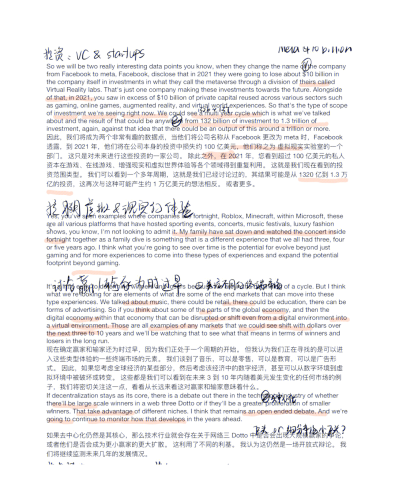 投资：VC & startups
meta $10 billion
So we will be two really interesting data points you know, when they change the name of the company
from Facebook to meta, Facebook, disclose that in 2021 they were going to lose about $10 billion in
the company itself in investments in what they call the metaverse through a division of theirs called
Virtual Reality labs. That's just one company making these investments towards the future. Alongside
of that, in 2021, you saw in excess of $10 billion of private capital reused across various sectors such
as gaming, online games, augmented reality, and virtual world experiences. So that's the type of scope
of investment we're seeing right now. We could see a multi year cycle which is what we've talked
about and the result of that could be anywhere from 132 billion of investment to 1.3 trillion of
investment, again, against that idea that there could be an output of this around a trillion or more.
因此，我们将成为两个非常有趣的数据点，当他们将公司名称从 Facebook 更改为 meta 时，Facebook
透露，到 2021 年，他们将在公司本身的投资中损失约 100 亿美元，他们称之为 虚拟现实实验室的一个
部门。 这只是对未来进行这些投资的一家公司。 除此之外，在 2021 年，您看到超过 100 亿美元的私人
资本在游戏、在线游戏、增强现实和虚拟世界体验等各个领域得到重复利用。 这就是我们现在看到的投
资范围类型。 我们可以看到一个多年周期，这就是我们已经讨论过的，其结果可能是从 1320 亿到 1.3 万
亿的投资，这再次与这种可能产生约 1 万亿美元的想法相反。 或者更多。
Yes, you've open examples where companies like fortnight, Roblox, Minecraft, within Microsoft, these
are all various platforms that have hosted sporting events, concerts, music festivals, luxury fashion
shows, you know, I'm not looking to admit it. My family have sat down and watched the concert inside
fortnight together as a family dive is something that is a different experience that we all had three, four
or five years ago. I think what you're going to see over time is the potential for evolve beyond just
gaming and for more experiences to come into these types of experiences and expand the potential
footprint beyond gaming.
type experiences. We talked about music, there could be retail, there could be education, there can be
forms of advertising. So if you think about some of the parts of the global economy, and then the
digital economy within that economy that can be disrupted or shift even from a digital environment into
a virtual environment. Those are all examples of any markets that we could see shift with dollars over
the next three to 10 years and we'll be watching that to see what that means in terms of winners and
losers in the long run.
现在确定赢家和输家还为时过早，因为我们正处于一个周期的开始。 但我认为我们正在寻找的是可以进
入这些类型体验的一些终端市场的元素。 我们谈到了音乐，可以是零售，可以是教育，可以是广告形
式。 因此，如果您考虑全球经济的某些部分，然后考虑该经济中的数字经济，甚至可以从数字环境到虚
拟环境中被破坏或转变。 这些都是我们可以看到在未来 3 到 10 年内随着美元发生变化的任何市场的例
子，我们将密切关注这一点，看看从长远来看这对赢家和输家意味着什么。
If decentralization stays as its core, there is a debate out there in the tech industry of whether
there'll be large scale winners in a web three Dotto or if they'll be a greater proliferation of smaller
winners. That take advantage of different niches. I think that remains an open ended debate. And we're
going to continue to monitor how that develops in the years ahead.
如果去中心化仍然是其核心，那么技术行业就会存在关于网络三 Dotto 中是否会出现大规模赢家的争论，
或者他们是否会成为更小赢家的更大扩散。 这利用了不同的利基。 我认为这仍然是一场开放式辩论。 我
们将继续监测未来几年的发展情况。